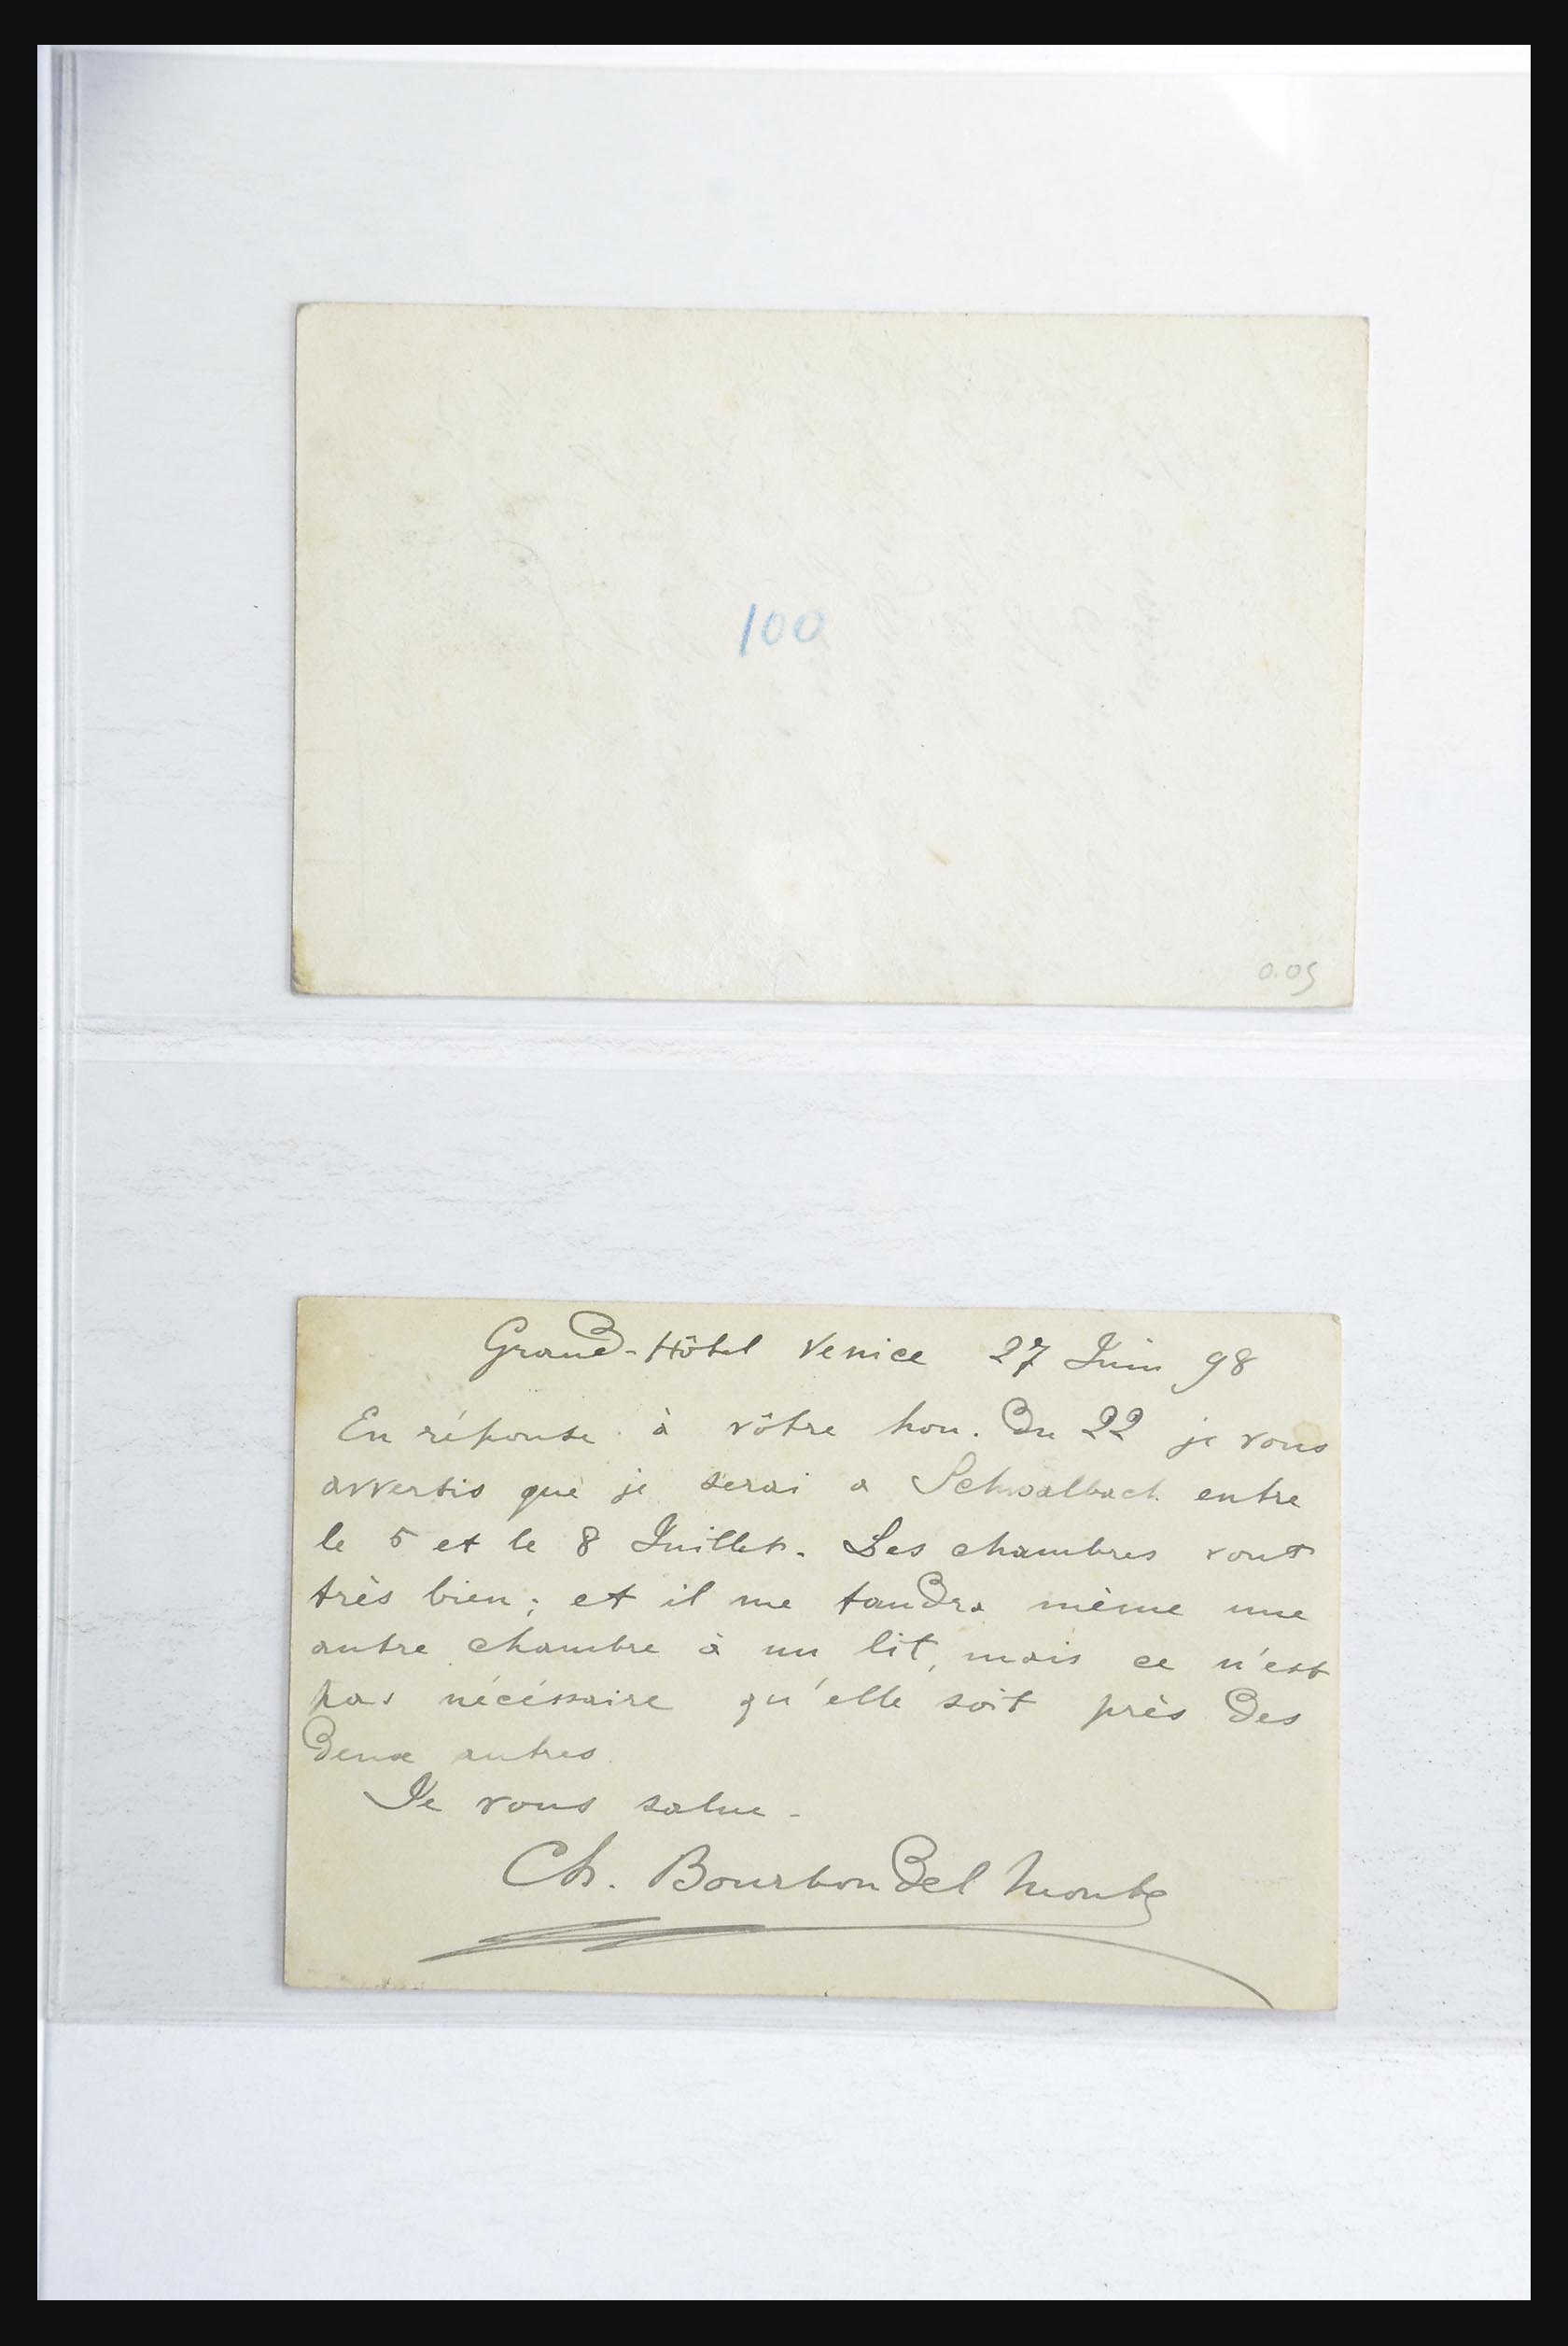 100
0.05
Grand-Hôtel Venice 27 Juin 98
En réponse à vôtre hon. du 22 je vous
avvertis que je serai a Schwalbach entre
le 5 et le 8 Juillet. Les chambres vont
très bien; et il me faudra même une
autre chambre à un lit, mais ce n'est
pas nécéssaire qu'elle soit près des
deux autres.
Je vous salue -
Ch. Bourbon del Monte